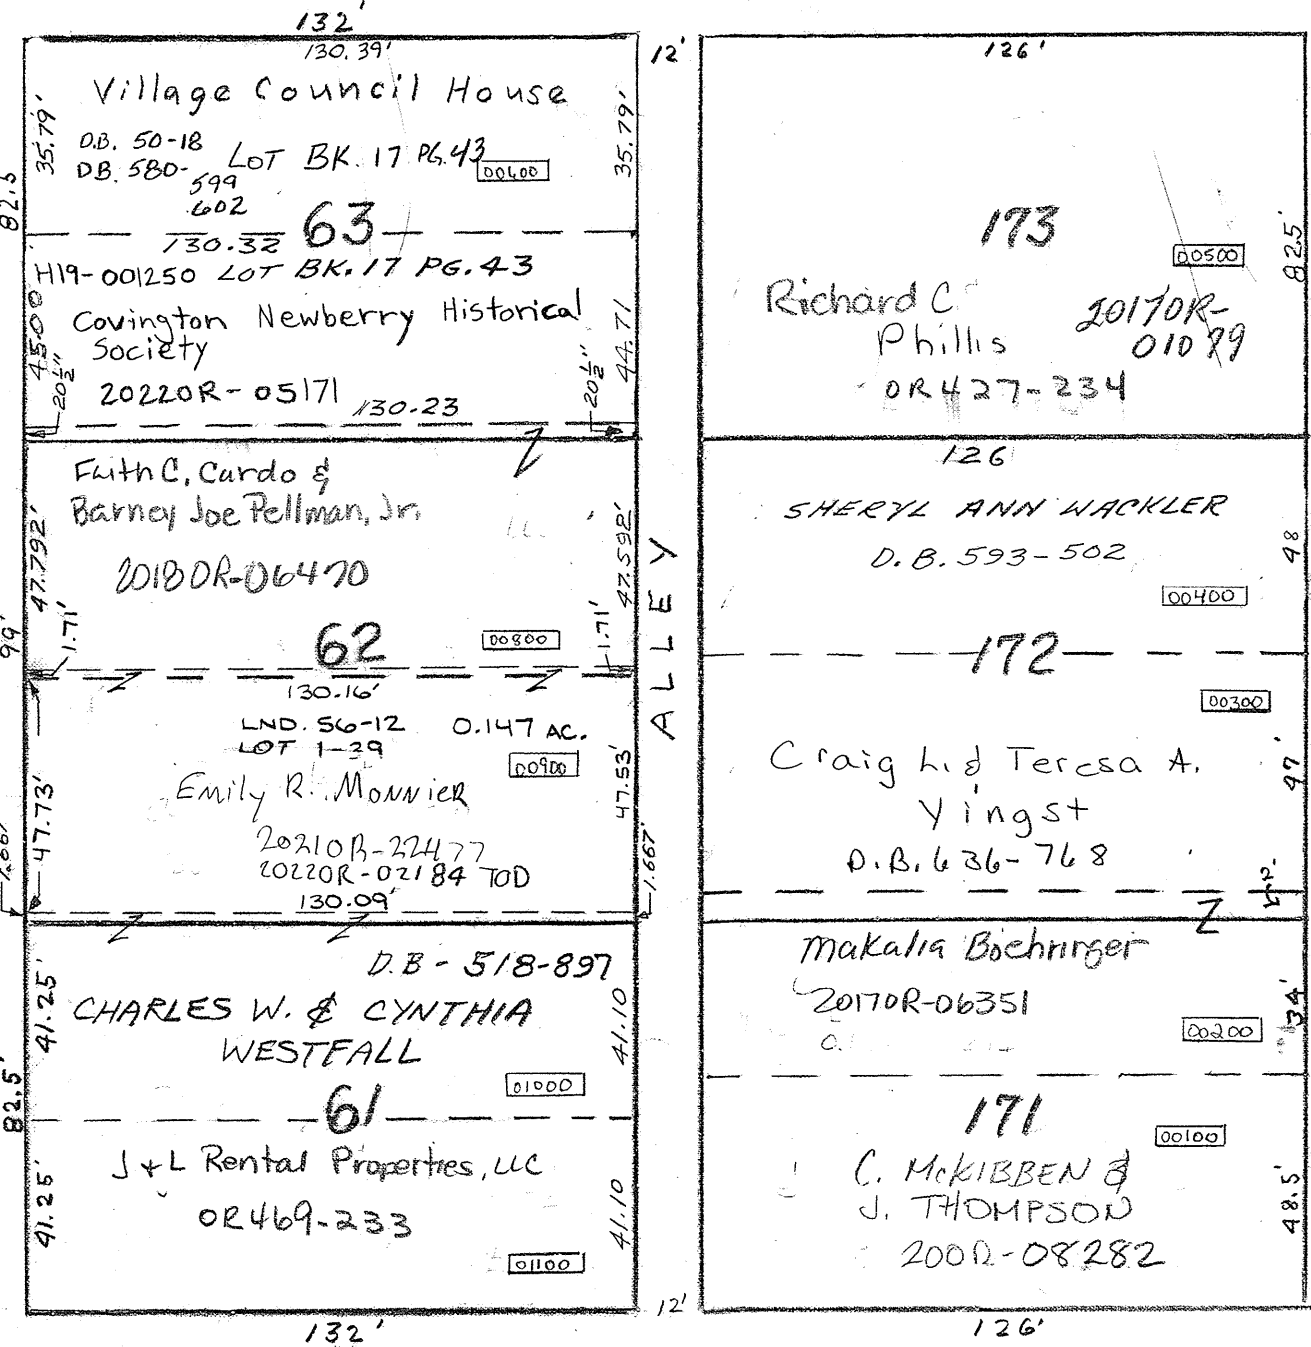 132'
130.39'
Village Council House
D.B. 50-18
DB. 580-
599
602
LOT BK. 17 PG. 43
00600
35.79'
35.79'
82.5
63
130.32
H19-001250 LOT BK. 17 PG. 43
Covington Newberry Historical
Society
20220R-05171
130.23
45.00
20½"
20½"
44.71
Faith C. Cardo &
Barney Joe Pellman, Jr.
20180R-06470
47.792'
47.592'
1.71'
1.71'
99'
62
00800
130.16'
LND. 56-12 0.147 AC.
LOT 1-29
00900
Emily R. Monnier
20210R-22477
20220R-02184 TOD
130.09'
47.73'
47.53'
1.667'
1.667'
D.B - 518-897
CHARLES W. & CYNTHIA
WESTFALL
41.25'
41.10
01000
82.5'
61
J + L Rental Properties, LLC
OR469-233
41.25'
41.10
01100
132'
12'
ALLEY
12'
126'
173
00500
82.5'
Richard C
Phillis
20170R-
OR427-234
126
SHERYL ANN WACKLER
D.B. 593-502
48
00400
172
00300
Craig L. & Teresa A.
Yingst
D.B. 636-768
47'
Makalia Boehringer
20170R-06351
34'
00200
171
00100
C. McKIBBEN &
J. THOMPSON
200R-08282
48.5'
126'